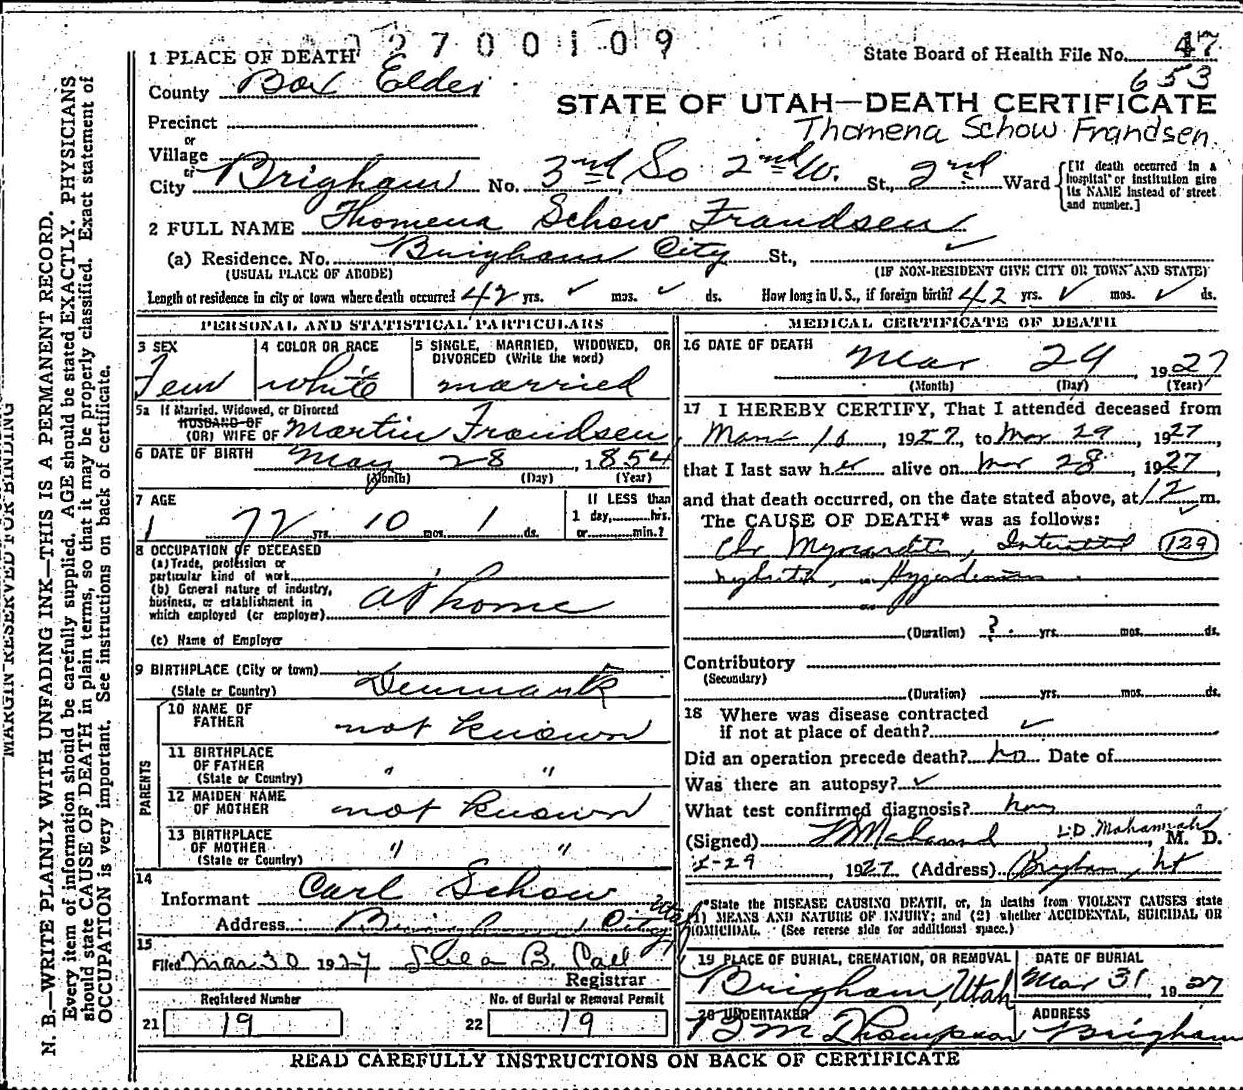 2700109
1 PLACE OF DEATH
State Board of Health File No. 47
County Box Elder
653
STATE OF UTAH—DEATH CERTIFICATE
Precinct
Thomena Schow Frandsen.
or
Village
or
City Brigham No. 3nd So 2nd W. St., 2nd Ward
[If death occurred in a hospital or institution give its NAME instead of street and number.]
2 FULL NAME Thomena Schow Frandsen
(a) Residence. No. Brigham City St.,
(USUAL PLACE OF ABODE) (IF NON-RESIDENT GIVE CITY OR TOWN AND STATE)
Length of residence in city or town where death occurred 42 yrs. ✓ mos. ✓ ds. How long in U. S., if foreign birth? 42 yrs. ✓ mos. ✓ ds.
PERSONAL AND STATISTICAL PARTICULARS
3 SEX
Fem
4 COLOR OR RACE
white
5 SINGLE, MARRIED, WIDOWED, OR
DIVORCED (Write the word)
married
5a If Married, Widowed, or Divorced
HUSBAND OF
(OR) WIFE OF Martin Frandsen
6 DATE OF BIRTH May 28, 1854
(Month) (Day) (Year)
7 AGE
72 yrs. 10 mos. 1 ds.
If LESS than
1 day,......hrs.
or......min.?
8 OCCUPATION OF DECEASED
(a) Trade, profession or
particular kind of work
(b) General nature of industry,
business, or establishment in
which employed (or employer) at home
(c) Name of Employer
9 BIRTHPLACE (City or town)
(State or Country) Denmark
PARENTS
10 NAME OF
FATHER not known
11 BIRTHPLACE
OF FATHER
(State or Country) " "
12 MAIDEN NAME
OF MOTHER not known
13 BIRTHPLACE
OF MOTHER
(State or Country) " "
14
Informant Carl Schow
Address Brigham City Utah
15
Filed Mar 30 1927 B. Call
Registrar
Registered Number
21 19
No. of Burial or Removal Permit
22 19
MEDICAL CERTIFICATE OF DEATH
16 DATE OF DEATH
Mar 29 1927
(Month) (Day) (Year)
17 I HEREBY CERTIFY, That I attended deceased from
16, 1927, to Mar 29, 1927,
that I last saw her alive on Mar 28, 1927,
and that death occurred, on the date stated above, at 12 m.
The CAUSE OF DEATH* was as follows:
Chr Myocarditis, Interstitial (129)
(Duration) ? yrs. mos. ds.
Contributory
(Secondary)
(Duration) yrs. mos. ds.
18 Where was disease contracted
if not at place of death? ✓
Did an operation precede death? no Date of
Was there an autopsy? ✓
What test confirmed diagnosis?
(Signed) L.D. Mohannah, M. D.
29 1927 (Address) Brigham, Ut
*State the DISEASE CAUSING DEATH, or, in deaths from VIOLENT CAUSES state
(1) MEANS AND NATURE OF INJURY; and (2) whether ACCIDENTAL, SUICIDAL OR
HOMICIDAL. (See reverse side for additional space.)
19 PLACE OF BURIAL, CREMATION, OR REMOVAL
Brigham, Utah
DATE OF BURIAL
Mar 31 1927
20 UNDERTAKER
B M Thompson
ADDRESS
Brigham
READ CAREFULLY INSTRUCTIONS ON BACK OF CERTIFICATE
MARGIN RESERVED FOR BINDING
N. B.—WRITE PLAINLY WITH UNFADING INK—THIS IS A PERMANENT RECORD.
Every item of information should be carefully supplied. AGE should be stated EXACTLY. PHYSICIANS
should state CAUSE OF DEATH in plain terms, so that it may be properly classified. Exact statement of
OCCUPATION is very important. See instructions on back of certificate.